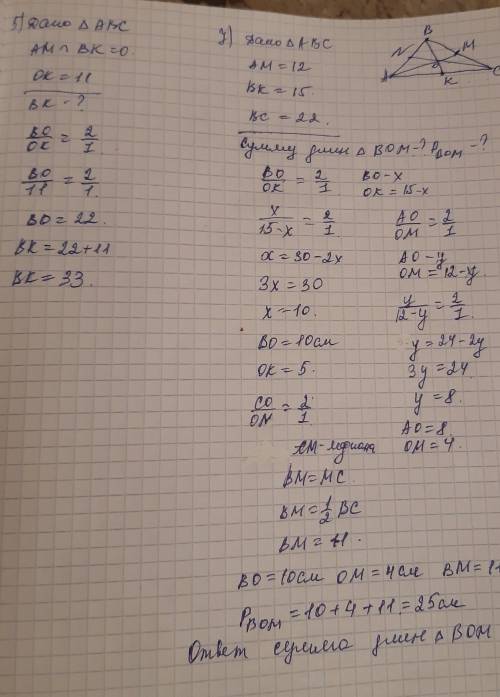 5) Дано △ABC
AM ∩ BK = O.
OK = 11
BK - ?
BO/OK = 2/1
BO/11 = 2/1.
BO = 22.
BK = 22+11
BK = 33.
7) Дано △ABC
AM = 12
BK = 15.
BC = 22.
Сумму длин △ BOM - ? P_BOM - ?
BO/OK = 2/1
BO - x
OK = 15-x
x/15-x = 2/1
x = 30-2x
3x = 30
x = 10.
BO = 10см
OK = 5.
CO/ON = 2/1
AO/OM = 2/1
AO - y
OM = 12-y
y/12-y = 2/1
y = 24-2y
3y = 24
y = 8.
AO = 8.
OM = 4.
AM - медиана
BM = MC
BM = 1/2 BC
BM = 11.
BO = 10см OM = 4см BM = 11
P_BOM = 10+4+11 = 25см
Ответ сумма длин △ BOM
B
N
M
O
A
K
C